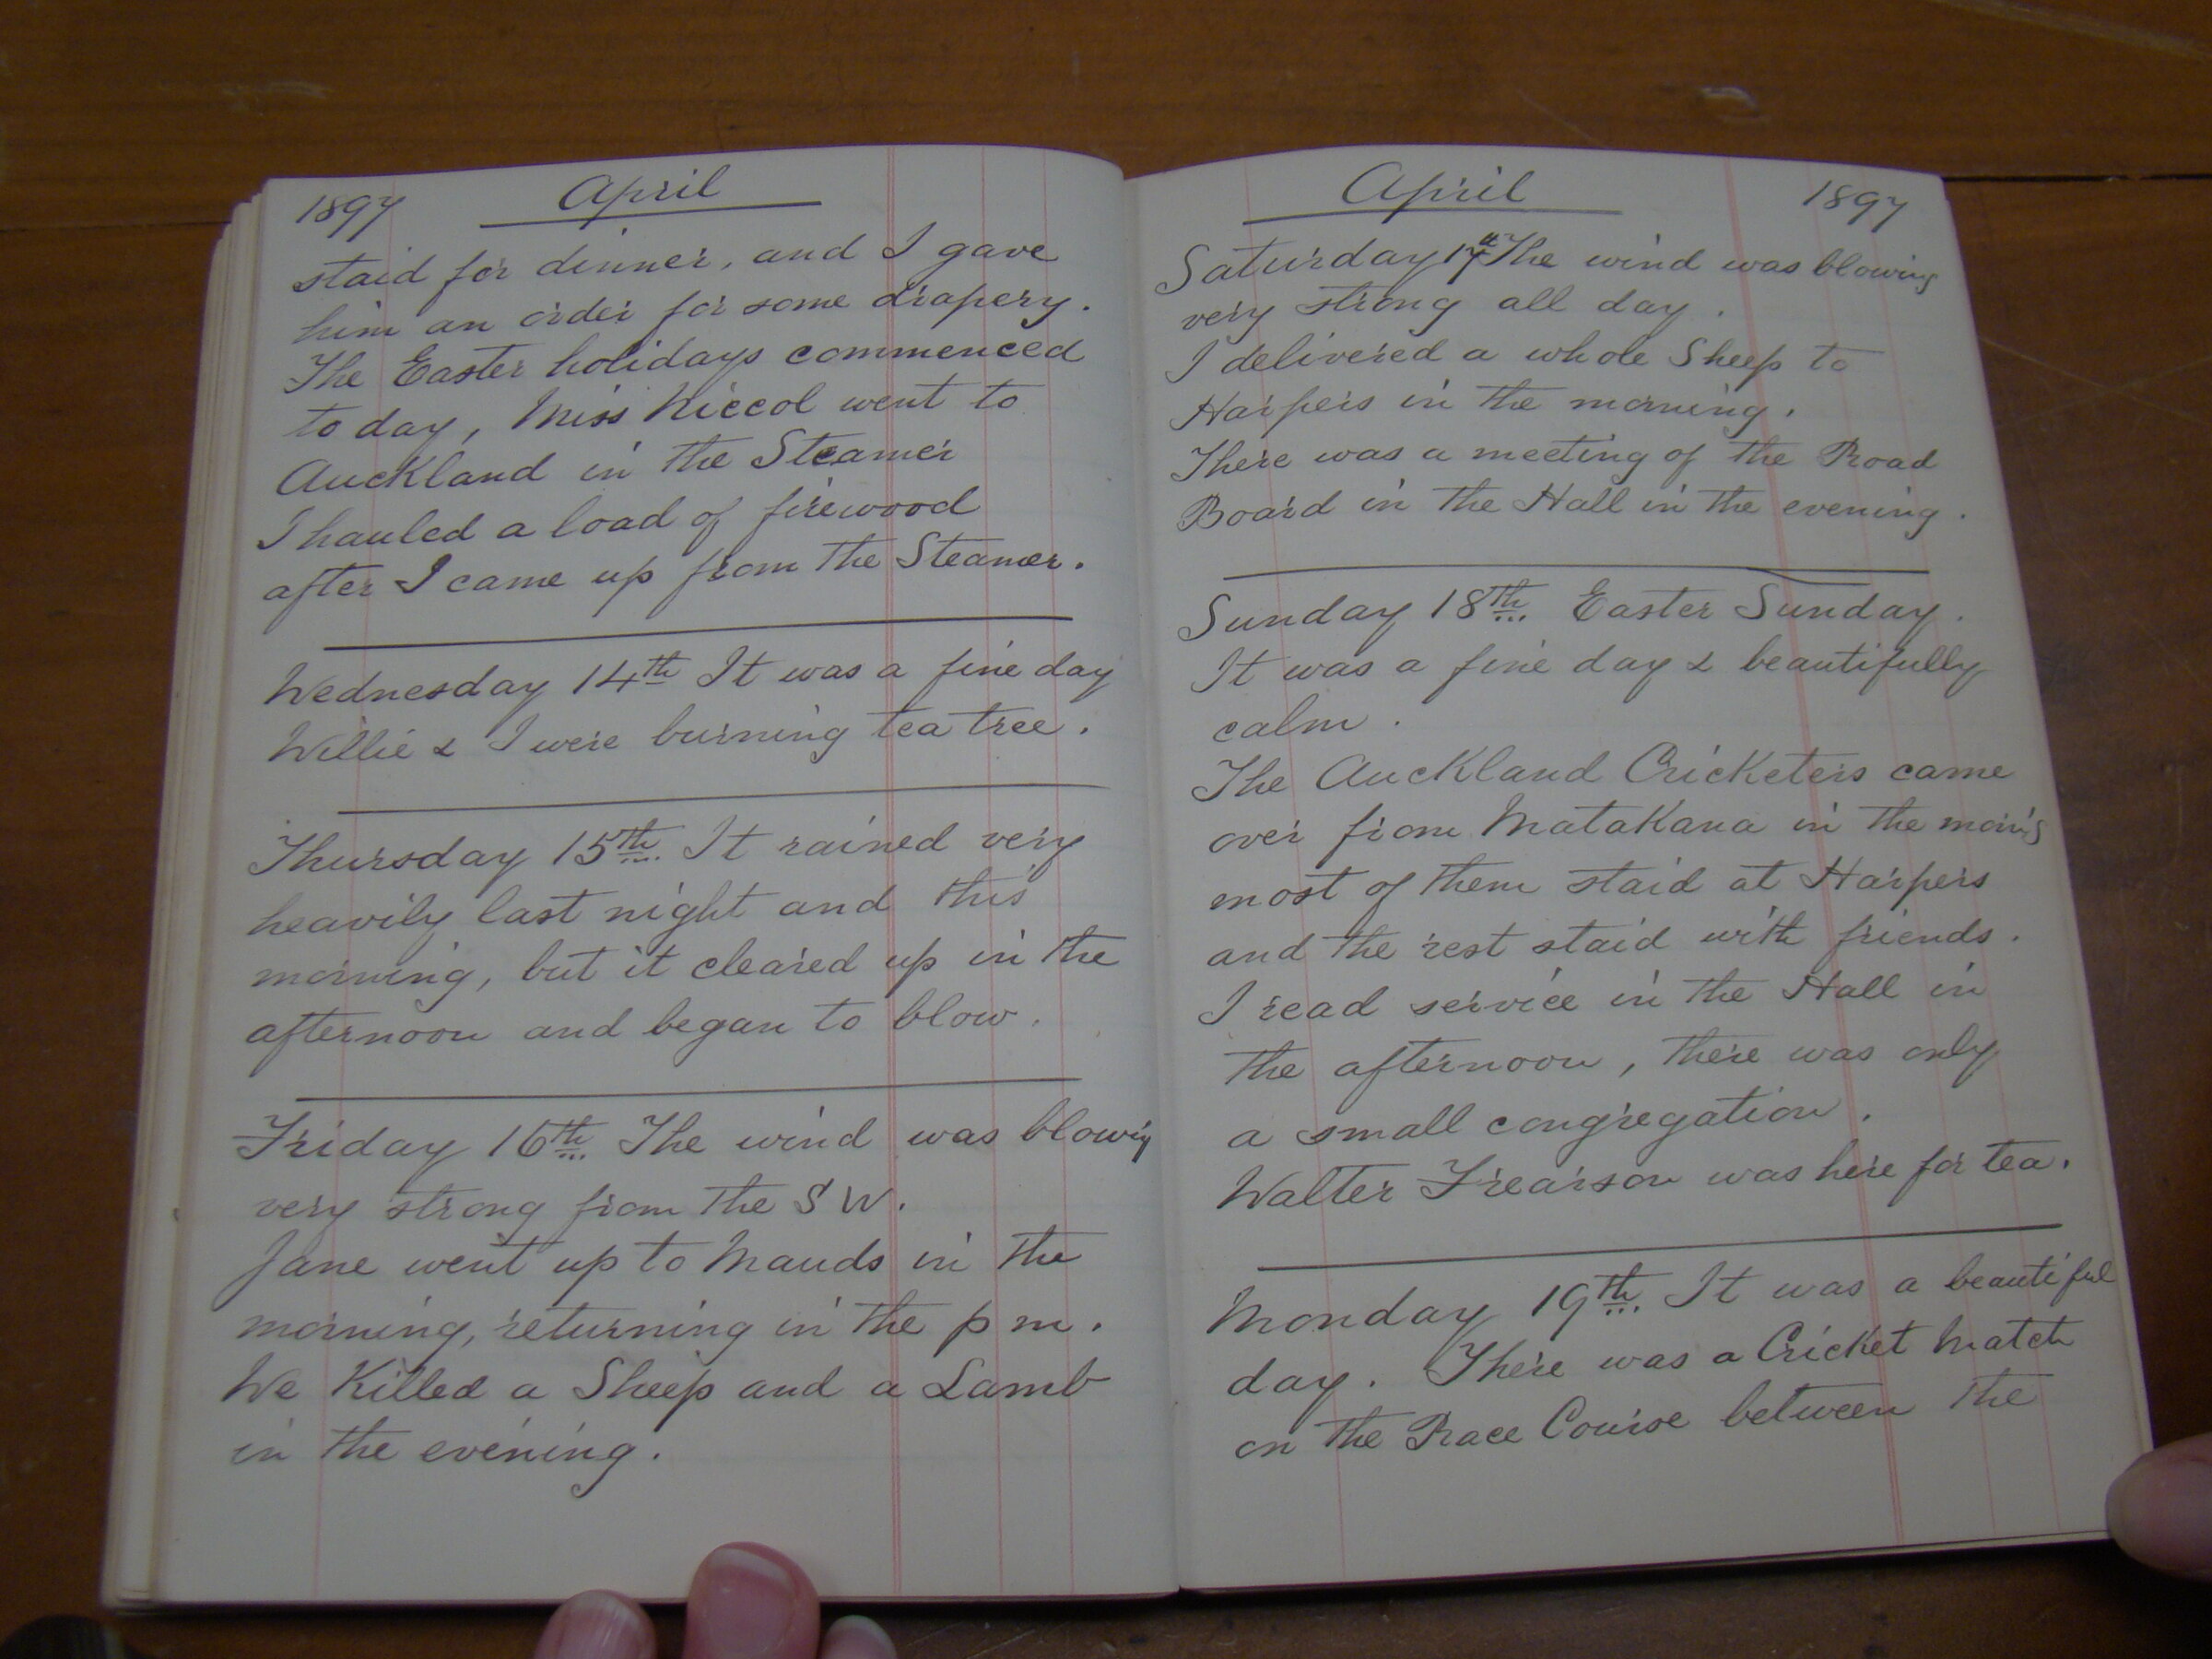 1897 April
staid for dinner, and I gave
him an order for some drapery.
The Easter holidays commenced
to day, Miss Niccol went to
Auckland in the Steamer
I hauled a load of firewood
after I came up from the Steamer.
Wednesday 14th It was a fine day
Willie & I were burning tea tree.
Thursday 15th. It rained very
heavily last night and this
morning, but it cleared up in the
afternoon and began to blow.
Friday 16th. The wind was blowing
very strong from the S W.
Jane went up to Mauds in the
morning, returning in the p m.
We Killed a Sheep and a Lamb
in the evening.
April 1897
Saturday 17th The wind was blowing
very strong all day.
I delivered a whole Sheep to
Harpers in the morning.
There was a meeting of the Road
Board in the Hall in the evening.
Sunday 18th. Easter Sunday.
It was a fine day & beautifully
calm.
The Auckland Cricketers came
over from Matakana in the morng
most of them staid at Harpers
and the rest staid with friends.
I read service in the Hall in
the afternoon, there was only
a small congregation.
Walter Frearson was here for tea.
Monday 19th. It was a beautiful
day. There was a Cricket Match
on the Race Course between the